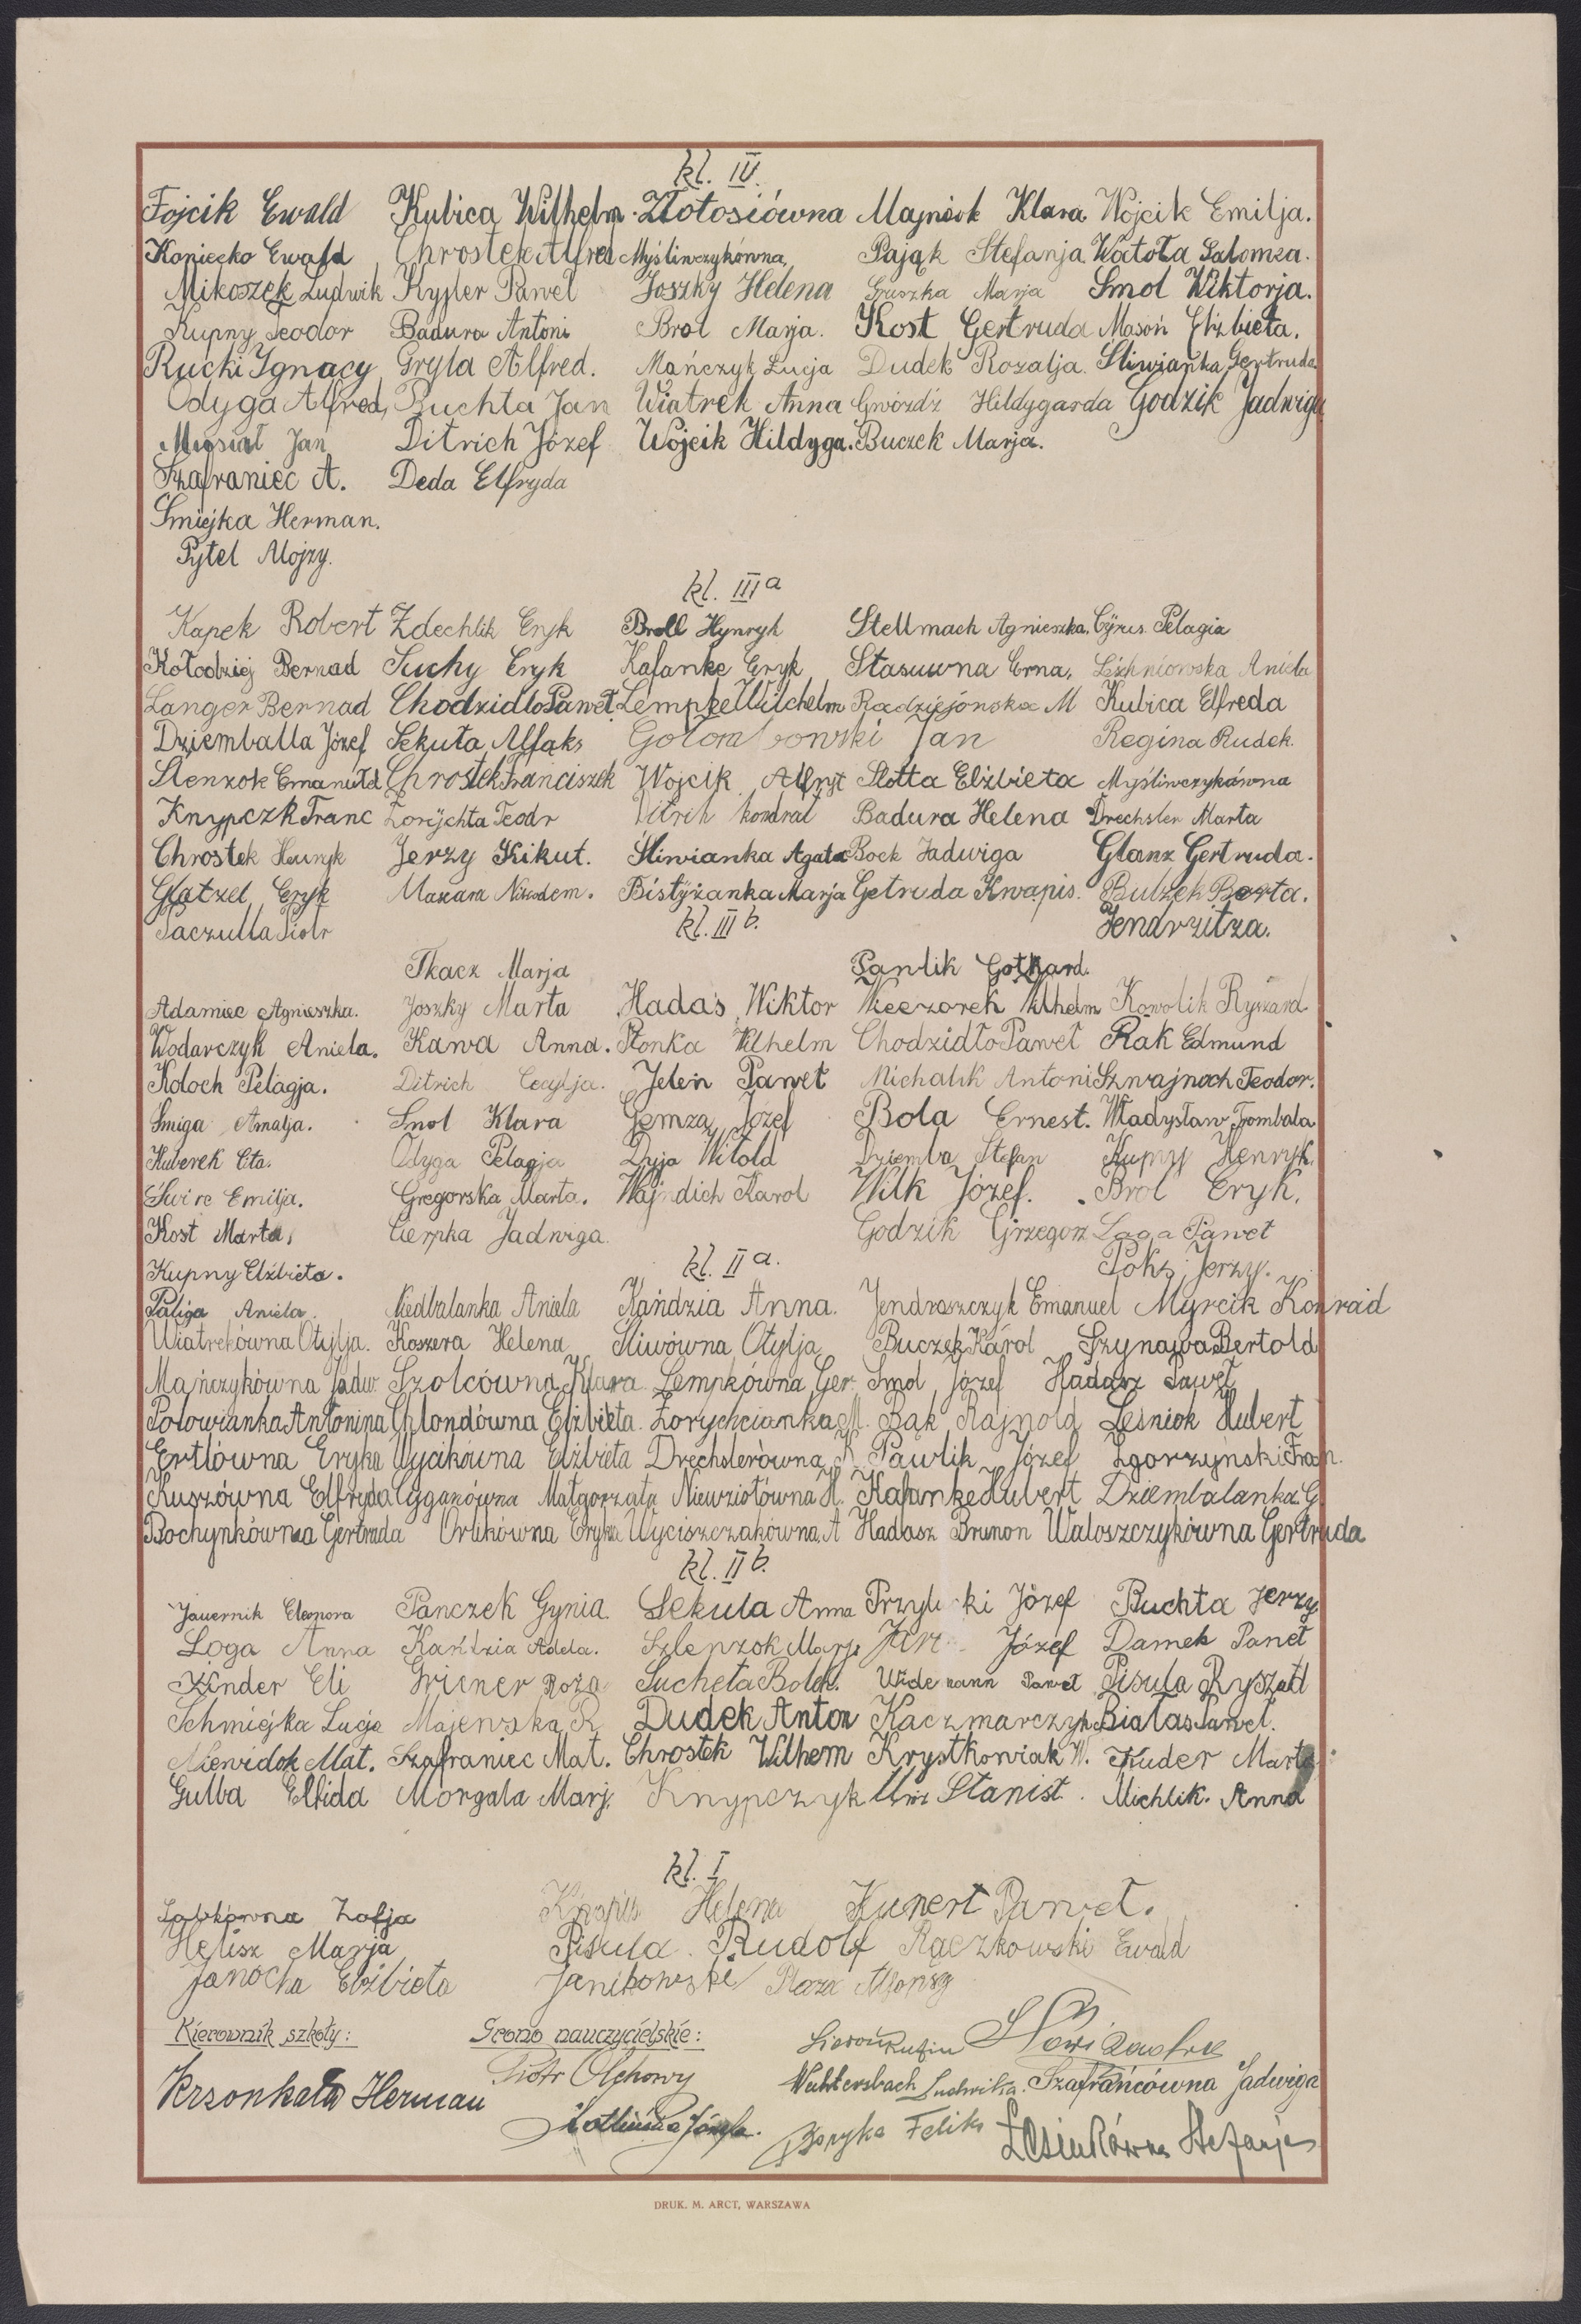 kl. IV.
Fojcik Ewald Kubica Wilhelm Złotosiówna Majniok Klara Wojcik Emilja.
Koniecko Ewald Chrostek Alfred Myśliwczykówna, Pająk Stefanja Watoła Salomea.
Mikoszek Ludwik Kysler Paweł Joszky Helena Gruszka Marja Smol Wiktorja.
Kupny Teodor Badura Antoni Brol Marja. Kost Gertruda Masoń Elżbieta.
Rucki Ignacy Gryla Alfred. Mańczyk Łucja Dudek Rozalja. Śliwianka Gertruda
Odyga Alfred, Buchta Jan Wiatrek Anna Gwóźdź Hildygarda Godzik Jadwiga
Musiał Jan Ditrich Józef Wojcik Hildyga. Buczek Marja.
Szafraniec A. Deda Elfryda
Śmiejka Herman.
Pytel Alojzy.
kl. III a
Kapek Robert Zdechlik Eryk Broll Hynryk Stellmach Agnieszka. Cyrus Pelagia
Kołodziej Bernad Suchy Eryk Kafanke Eryk Stasuwna Erna. Aniela
Langer Bernad Chodzidło Paweł. Lempke Wilchelm Radziejónska M Kubica Elfreda
Dziemballa Józef Sekuła Alfąks Gołombowski Jan Regina Rudek.
Slenzok Emanuel Chrostek Franciszek Wojcik Alfryt Slotta Elżbieta Myśliwczykówna
Knypczk Franc Zorychta Teodr Ditrih kondrat Badura Helena Drechsler Marta
Chrostek Henryk Jerzy Kikut. Śliwianka Agata Bock Jadwiga Glanz Gertruda.
Glatzel Eryk Makara Nikodem. Bistyżanka Marja Getruda Kwapis. Bulzek Berta.
Paczulla Piotr kl. III b. Jendrzitza.
Tkacz Marja Pantik Gothard.
Adamiec Agnieszka. Joszky Marta Hadaś Wiktor Wieczorek Wilhelm Kowolik Ryszard
Wodarczyk Aniela. Kawa Anna. Płonka Wilhelm Chodzidło Paweł Rak Edmund
Koloch Pelagja. Ditrich Cecylja. Jeleń Paweł Michalik Antoni Szwajnoch Teodor.
Śmiga Amalja. Smol Klara Gemza Józef Bola Ernest. Władysław Trombala
Kuberek Eta. Odyga Pelagja Dyja Witold Dziemba Stefan Kupny Henryk.
Świre Emilja. Gregorska Marta. Wajndich Karol Wilk Józef. Brol Eryk.
Kost Marta, Cierpka Jadwiga. Godzik Grzegorz Laga Paweł
Kupny Elżbieta. kl. II a. Poks Jerzy.
Paliga Aniela. Niedbalanka Aniela Kańdzia Anna. Jendraszczyk Emanuel Myrcik Konrad
Wiatrekówna Otylja. Koszera Helena Śliwówna Otylja Buczek Karol Szynawa Bertold
Mańczykówna Jadw. Szolcówna Klara Lempkówna Ger. Smol Józef Hadasz Paweł
Połowianka Antonina Chlondówna Elżbieta. Zorychcianka M. Bąk Rajnold Leśniok Hubert
Ertlówna Eryka Wycikówna Elżbieta Drechslerówna K. Pawlik Józef Zgorzyński Fran.
Kuszówna Elfryda Cyganówna Małgorzata Niewziołówna H. Kafanke Hubert Dziembalanka G.
Bochynkówna Gertruda Orlikówna Eryka Wyciszczakówna A Hadasz Brunon Waloszczykówna Gertruda
kl. II b.
Jauernik Eleonora Panczek Gynia. Sekula Anna Józef Buchta Jerzy
Loga Anna Kańdzia Adela. Szlenzok Marj. Józef Damek Paweł
Kinder Eli Griener Roża Sucheta Bolek. Widemann Paweł Pisula Ryszatd
Schmiejka Lucja Majewska R. Dudek Anton Kaczmarczyk Białas Paweł.
Niewidok Mat. Szafraniec Mat. Chrostek Wilhem Krystkowiak W. Kuder Marta
Gulba Elfida Morgala Marj. Knypczyk Stanisł. Michlik. Anna
kl. I
Zofja Knapis Helena Kunert Paweł.
Helisz Marja Pisula. Rudolf Rączkowski Ewald
Janocha Elżbieta Janikowski Plaza Alfonsy
Kierownik szkoły: Grono nauczycielskie:
Krzonkała Herman Piotr Olchowy Wachtersbach Ludwika. Szafrańcówna Jadwiga
Józefa. Feliks Lesiukówna Stefanja
DRUK. M. ARCT, WARSZAWA